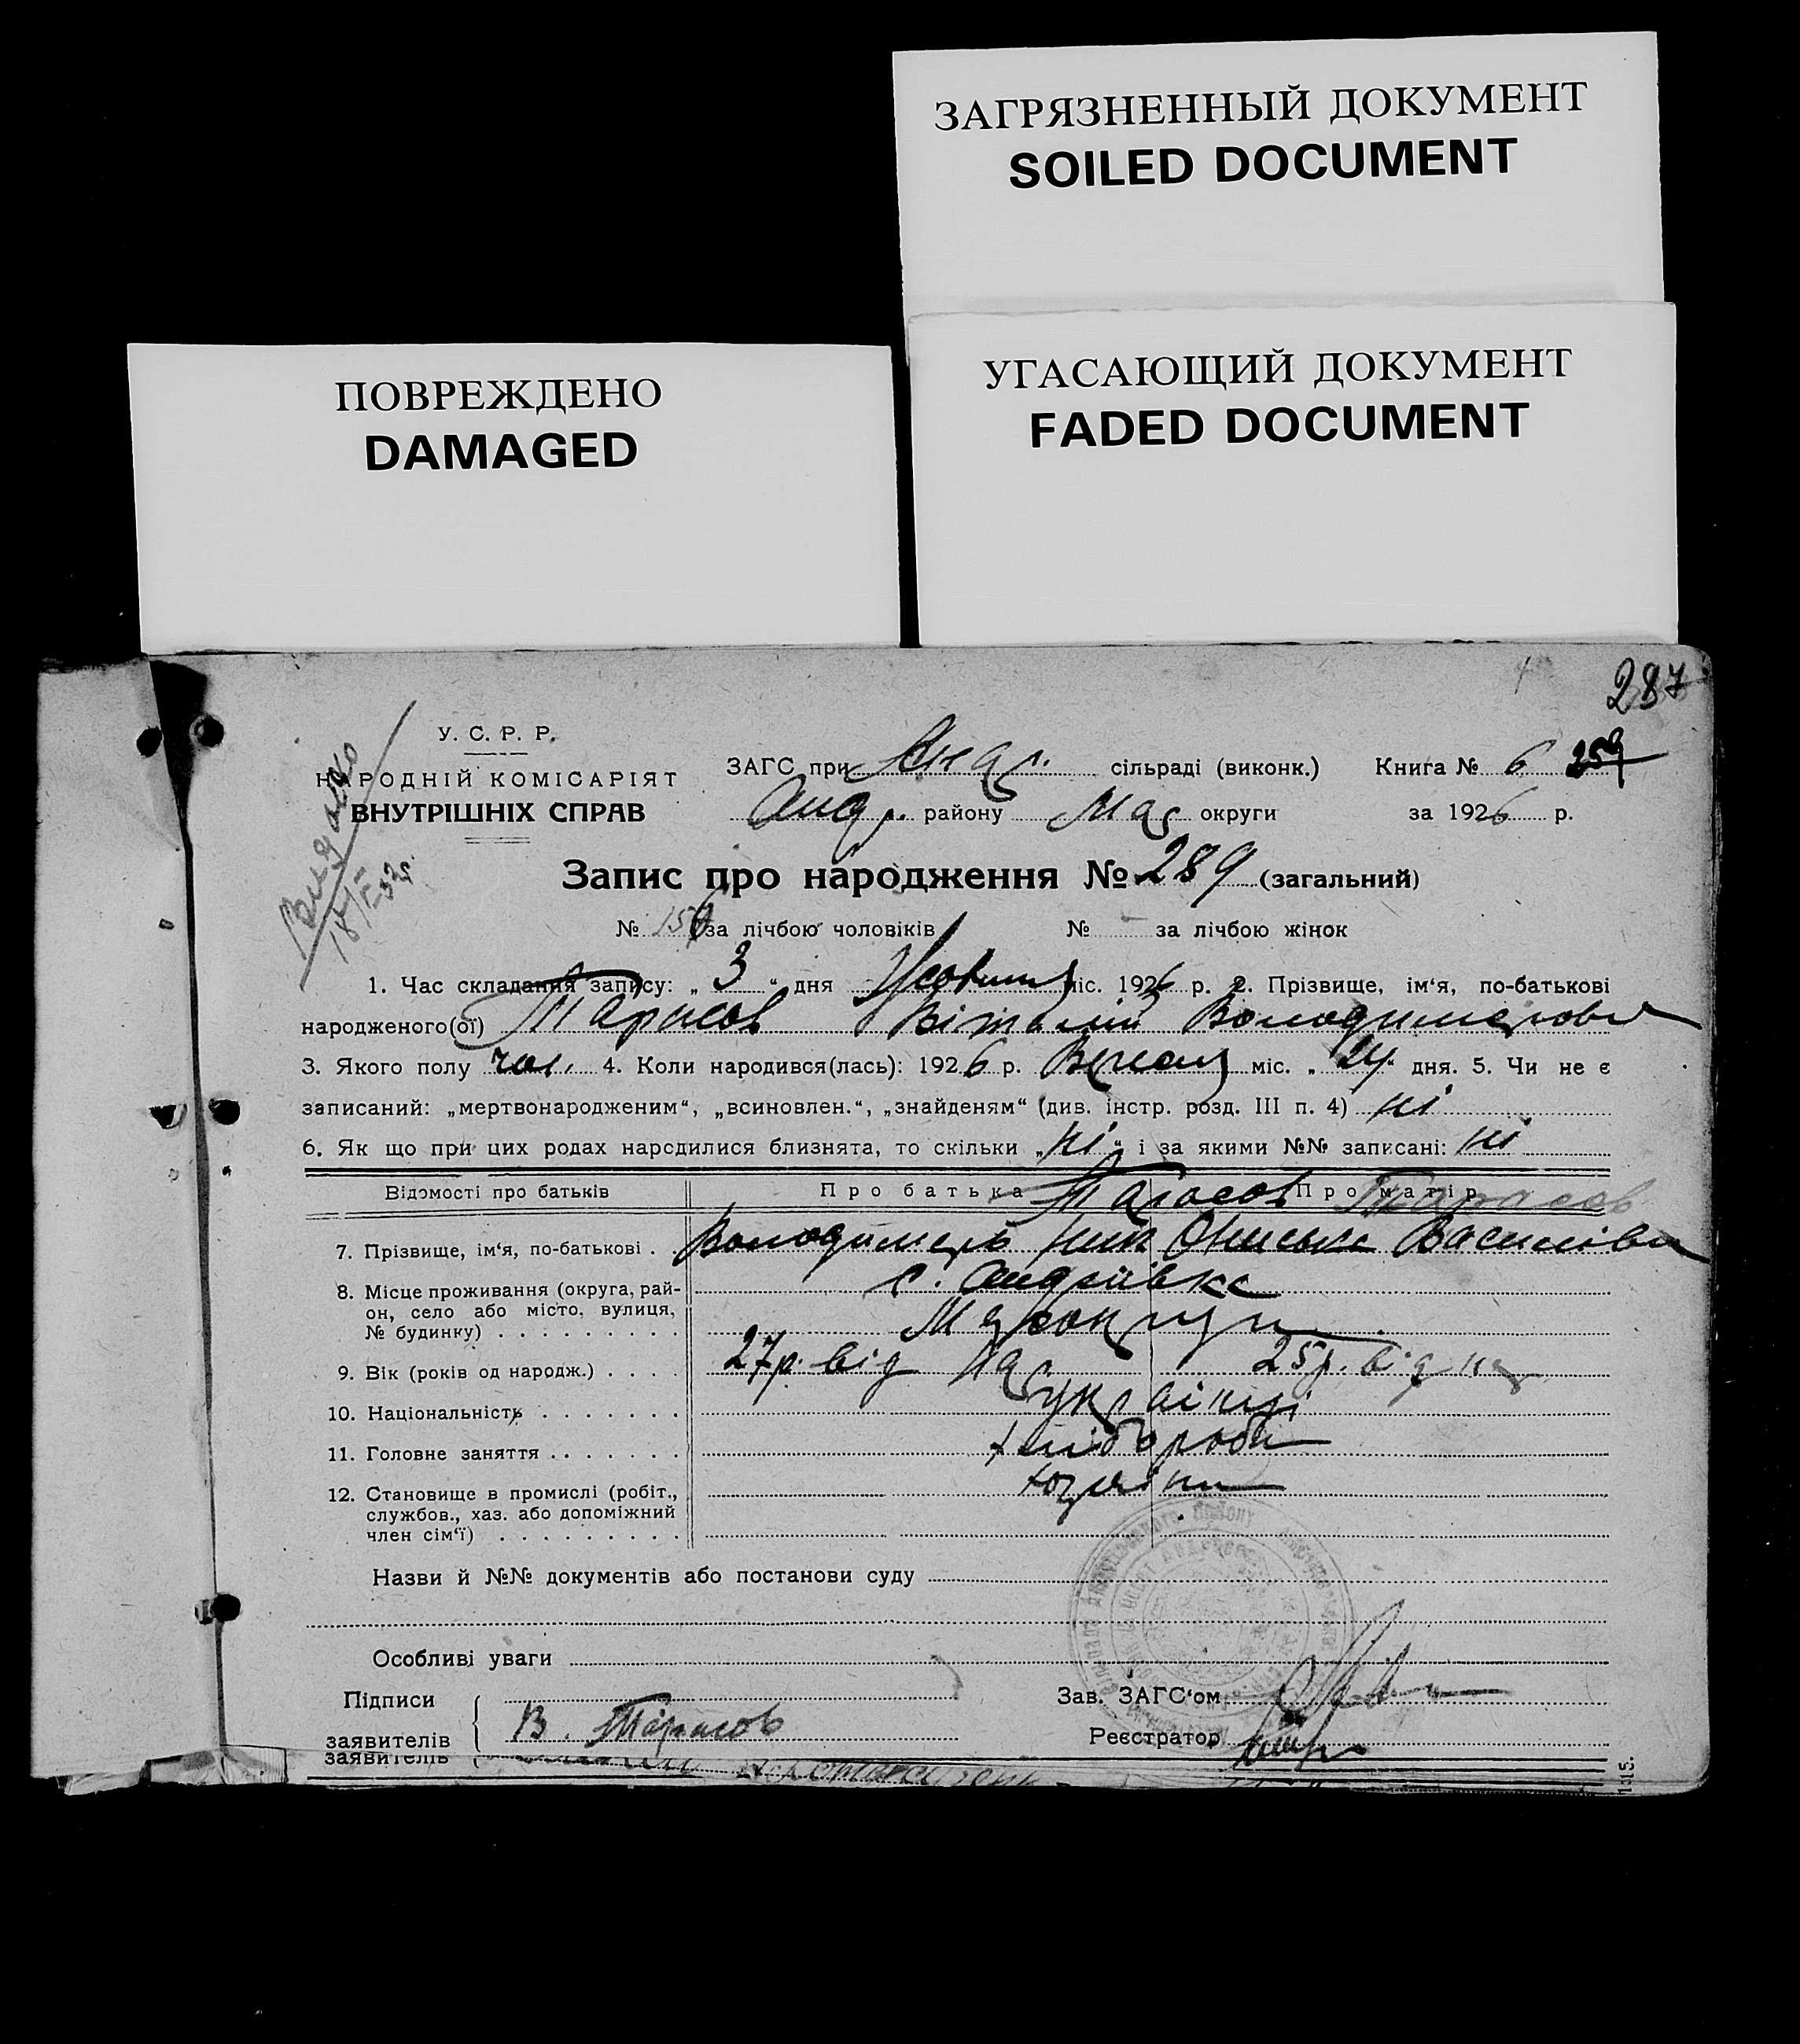 ЗАГРЯЗНЕННЫЙ ДОКУМЕНТ
SOILED DOCUMENT
ПОВРЕЖДЕНО
DAMAGED
УГАСАЮЩИЙ ДОКУМЕНТ
FADED DOCUMENT
287
У. С. Р. Р.
НАРОДНІЙ КОМІСАРІЯТ
ВНУТРІШНІХ СПРАВ
ЗАГС при сільраді (виконк.) Книга № 6 259
Андр. району Мар округи за 1926 р.
Запис про народження № 289 (загальний)
№ 150 за лічбою чоловіків № — за лічбою жінок
1. Час складання запису: „ 3 “ дня Жовтня міс. 1926 р. 2. Прізвище, ім‘я, по-батькові
народженого(ої) Тарасов Віталій Володимерови
3. Якого полу чол. 4. Коли народився(лась): 1926 р. Вересня міс. „ 24 “ дня. 5. Чи не є
записаний: „мертвонародженим“, „всиновлен.“, „знайденям“ (див. інстр. розд. III п. 4) ні
6. Як що при цих родах народилися близнята, то скільки „ ні “ і за якими №№ записані: ні
Відомості про батьків Про батька Тарасов Про матір Тарасов
7. Прізвище, ім‘я, по-батькові . Володимерь Ник Ониська Василівн
8. Місце проживання (округа, рай-
он, село або місто, вулиця,
№ будинку) . . . . . . . . .
с. Андріівка
Мар округи
9. Вік (років од народж.) . . . . 27 р. від нар 25 р. від нар
10. Національність . . . . . . . українці
11. Головне заняття . . . . . . . хлібороби
12. Становище в промислі (робіт.,
службов., хаз. або допоміжний
член сім‘ї) . . . . . . . . .
хозяіни
Назви й №№ документів або постанови суду
Особливі уваги
Підписи
заявителів
В. Тарасов
Зав. ЗАГС‘ом
Реєстратор
заявителів